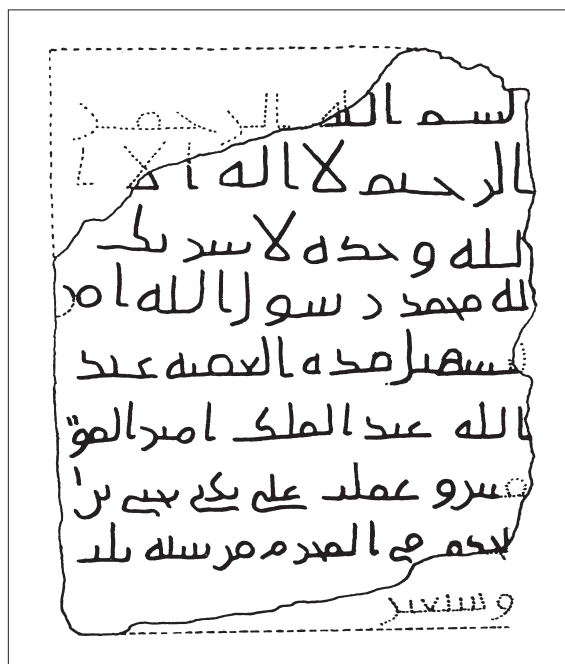 بسم الله الرحمن
الرحيم لا اله الا
الله وحده لا شريك
له محمد رسول الله امر
بتسهيل هذه العقبه عبد
الله عبد الملك امير المؤ
منين وعملت على يدي يحيى بن ا
لحكم في المحرم من سنه ثلث
وسبعين